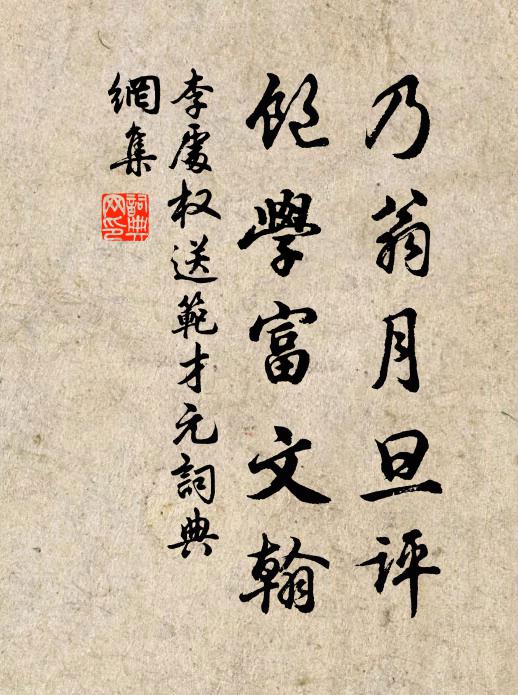 乃翁月旦評
飽學富文翰
李處权送範才元詞典
網集
詞典
网印